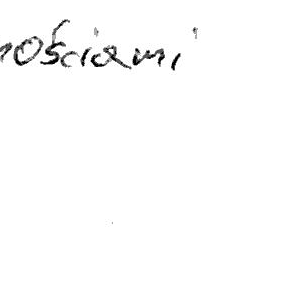 nościami